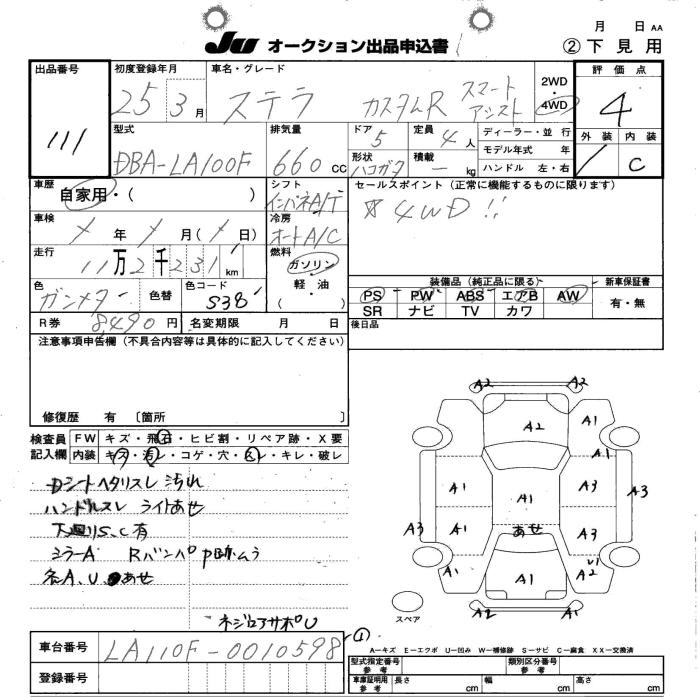 月 日 AA
JU オークション出品申込書
② 下見用
出品番号
111
初度登録年月
25 3月
車名・グレード
ステラ カスタムR スマートアシスト
2WD・4WD
評価点
4
外装 内装
C
型式
DBA-LA100F
排気量
660 cc
ドア
5
定員
4人
形状
ハコガタ
積載
－ kg
ディーラー・並行
モデル年式 年
ハンドル 左・右
車歴
自家用・( )
シフト
インパネA/T
セールスポイント（正常に機能するものに限ります）
☆4WD!!
車検
年 月( 日)
冷房
オートA/C
走行
11万2千231km
燃料
ガソリン・軽油・( )
色
ガンメタ
色替
色コード
S38
装備品（純正品に限る）
PS PW ABS エアB AW
SR ナビ TV カワ
新車保証書
有・無
R券
8,490円
名変期限 月 日
後日品
注意事項申告欄（不具合内容等は具体的に記入してください）
修復歴 有 〔箇所 〕
検査員記入欄
FW キズ・飛石・ヒビ割・リペア跡・X要
内装 キズ・汚レ・コゲ・穴・スレ・キレ・破レ
Dシートヘタリスレ 汚れ
ハンドルスレ ライトあせ
下廻りS、C有
ミラーA Rバンパ
各A、U あせ
A2 A2
A2 A1
A1
A1 A1 A3 A3
A3 A1 あせ A3
A1 A1 U1 A2
A2 A1
スペア
車台番号
LA110F-0010598
①
A－キズ E－エクボ U－凹み W－補修跡 S－サビ C－腐食 XX－交換済
登録番号
型式指定番号 参考
類別区分番号 参考
車庫証明用 参考
長さ cm 幅 cm 高さ cm